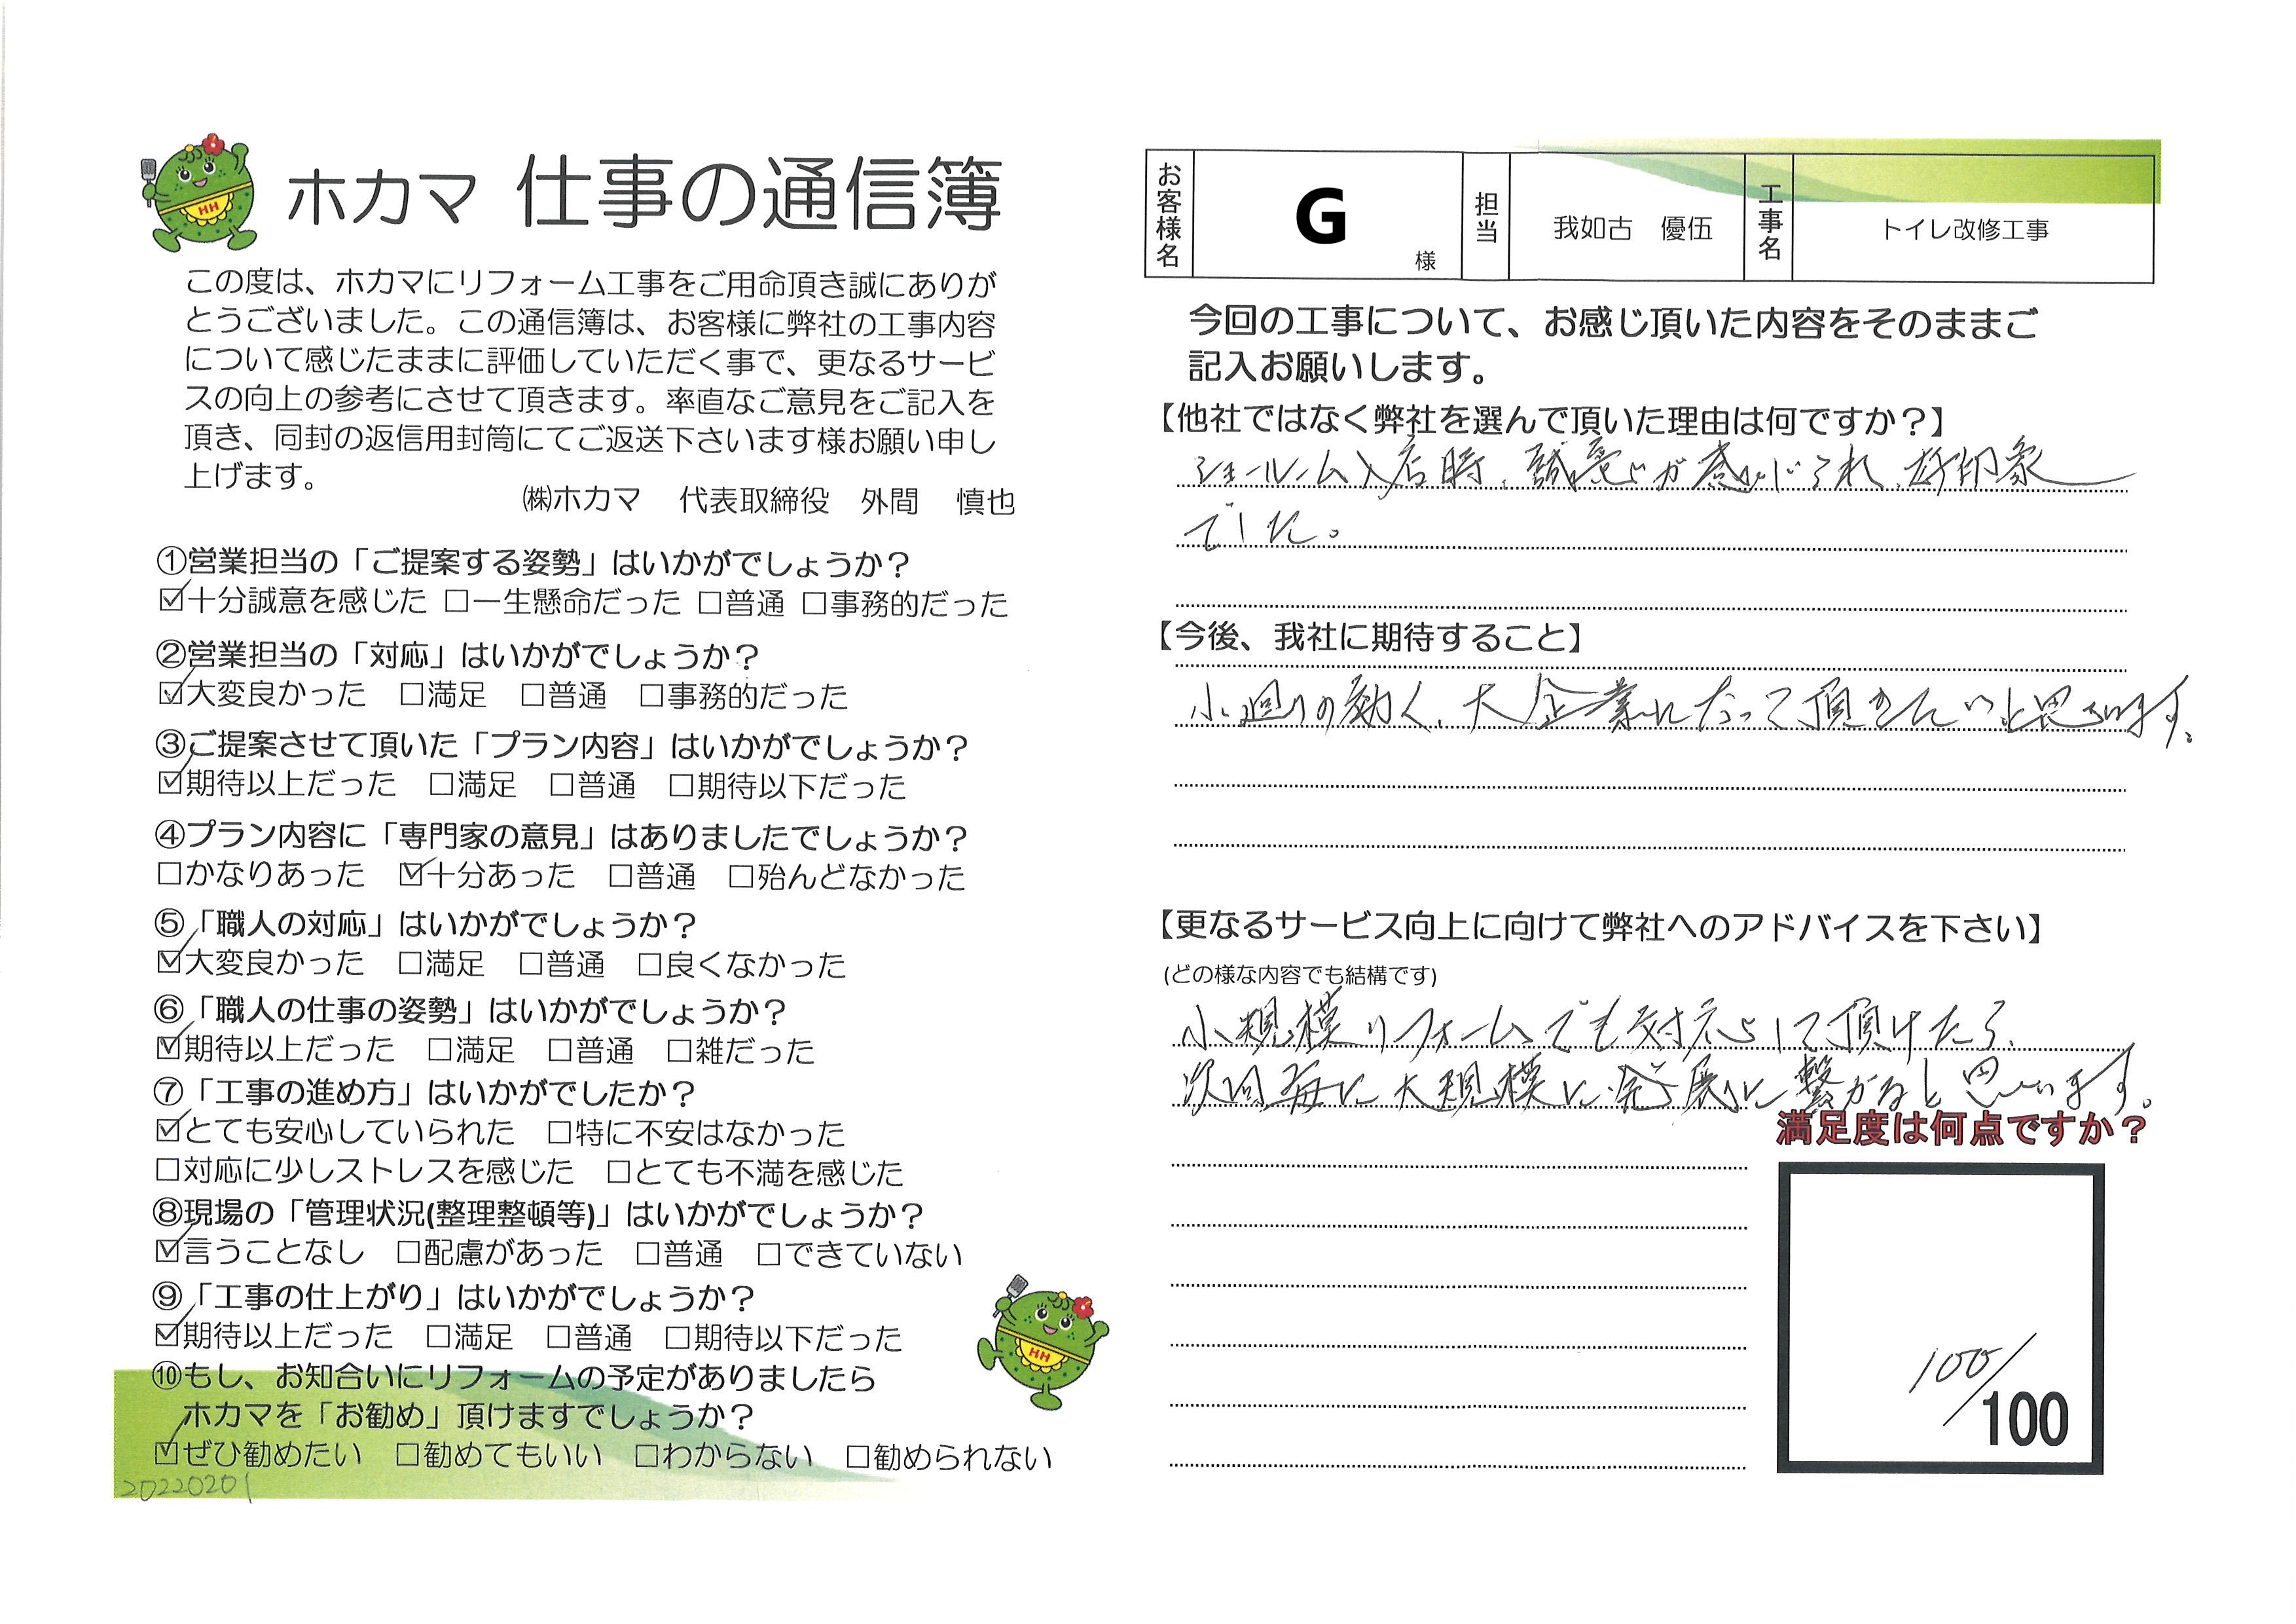 ホカマ 仕事の通信簿
この度は、ホカマにリフォーム工事をご用命頂き誠にありが
とうございました。この通信簿は、お客様に弊社の工事内容
について感じたままに評価していただく事で、更なるサービ
スの向上の参考にさせて頂きます。率直なご意見をご記入を
頂き、同封の返信用封筒にてご返送下さいます様お願い申し
上げます。
㈱ホカマ 代表取締役 外間 慎也
①営業担当の「ご提案する姿勢」はいかがでしょうか？
☑十分誠意を感じた □一生懸命だった □普通 □事務的だった
②営業担当の「対応」はいかがでしょうか？
☑大変良かった □満足 □普通 □事務的だった
③ご提案させて頂いた「プラン内容」はいかがでしょうか？
☑期待以上だった □満足 □普通 □期待以下だった
④プラン内容に「専門家の意見」はありましたでしょうか？
□かなりあった ☑十分あった □普通 □殆んどなかった
⑤「職人の対応」はいかがでしょうか？
☑大変良かった □満足 □普通 □良くなかった
⑥「職人の仕事の姿勢」はいかがでしょうか？
☑期待以上だった □満足 □普通 □雑だった
⑦「工事の進め方」はいかがでしたか？
☑とても安心していられた □特に不安はなかった
□対応に少しストレスを感じた □とても不満を感じた
⑧現場の「管理状況(整理整頓等)」はいかがでしょうか？
☑言うことなし □配慮があった □普通 □できていない
⑨「工事の仕上がり」はいかがでしょうか？
☑期待以上だった □満足 □普通 □期待以下だった
⑩もし、お知合いにリフォームの予定がありましたら
ホカマを「お勧め」頂けますでしょうか？
☑ぜひ勧めたい □勧めてもいい □わからない □勧められない
20220201
お客様名 G 様 担当 我如古 優伍 工事名 トイレ改修工事
今回の工事について、お感じ頂いた内容をそのままご
記入お願いします。
【他社ではなく弊社を選んで頂いた理由は何ですか？】
ショールーム入店時、誠意が感じられ、好印象
でした。
【今後、我社に期待すること】
小廻りの効く、大企業になって頂きたいと思います。
【更なるサービス向上に向けて弊社へのアドバイスを下さい】
(どの様な内容でも結構です)
小規模リフォームでも対応して頂けたら、
次回毎に大規模に発展に繋がると思います。
満足度は何点ですか？
100/100
HH
HH